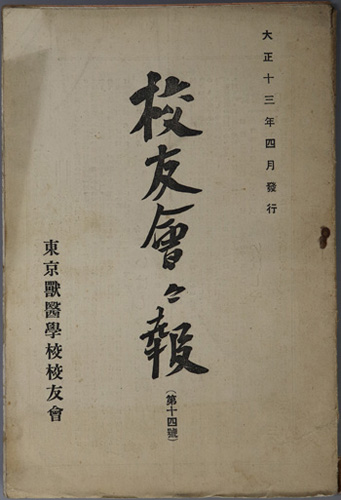 大正十三年四月發行
校友會々報
(第十四號)
東京獸醫學校校友會